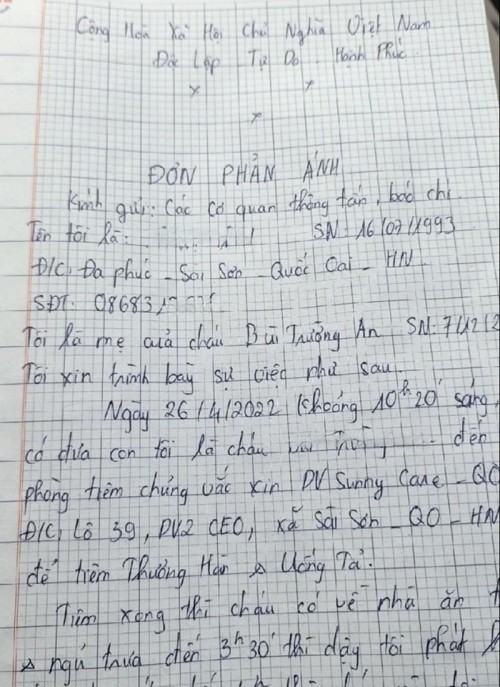 Cộng Hoà Xã Hội Chủ Nghĩa Việt Nam
Độc Lập Tự Do Hạnh Phúc
x x
x
ĐƠN PHẢN ÁNH
Kính gửi: Các cơ quan thông tấn, báo chí.
Tên tôi là: SN: 16/07/1993
Đ/C: Đa phúc - Sài Sơn - Quốc Oai - HN
SĐT: 08683
Tôi là mẹ của cháu Bùi Trường An SN: 7/12/2
Tôi xin trình bày sự việc như sau.
Ngày 26/4/2022 khoảng 10h20' sáng,
có đưa con tôi là cháu đến
phòng tiêm chủng vắc xin DV Sunny Care - QO
Đ/C, Lô 39, DV2 CEO, xã Sài Sơn - QO - HN
để tiêm Thương Hàn & Uống Tả.
Tiêm xong thì cháu có về nhà ăn t
& ngủ trưa đến 3h30' thì dậy tôi phát h